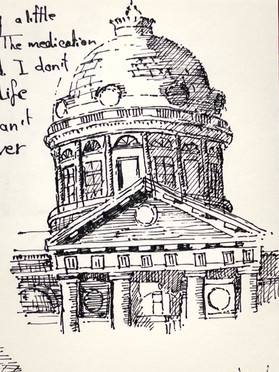 a little
The medication
I don't
life
an't
ver